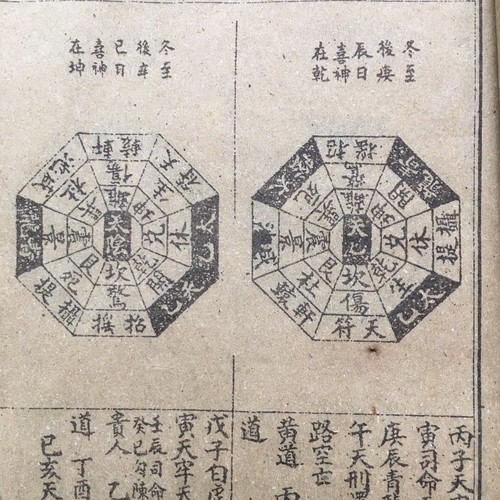 冬至
後庚
辰日
喜神
在乾
招摇
攝提
太乙
天符
軒轅
咸池
青龍
驚
開
休
生
傷
杜
景
死
離
坤
兌
乾
坎
艮
震
天乙
丙子天
寅司命
庚辰青
午天刑
路空亡
黄道
道
冬至
後辛
巳日
喜神
在坤
軒轅
天符
太乙
天乙
招摇
攝提
青龍
咸池
傷
生
休
開
驚
死
景
杜
離
坤
兌
乾
坎
艮
震
太陰
戊子白
寅天牢天
壬辰司命
癸巳勾陳
貴人 乙
道 丁酉
己亥天